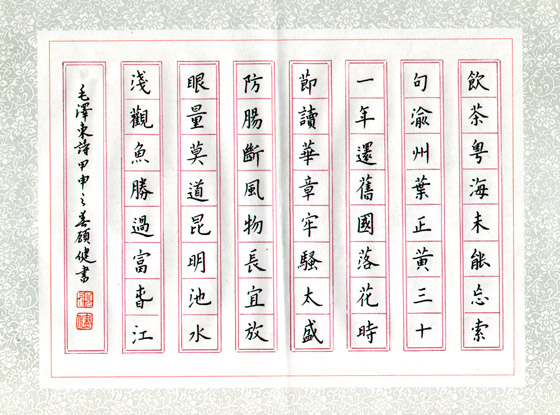 飲茶粵海未能忘索
句渝州葉正黃三十
一年還舊國落花時
節讀華章牢騷太盛
防腸斷風物長宜放
眼量莫道昆明池水
淺觀魚勝過富旾江
毛澤東詩甲申之春顧健書